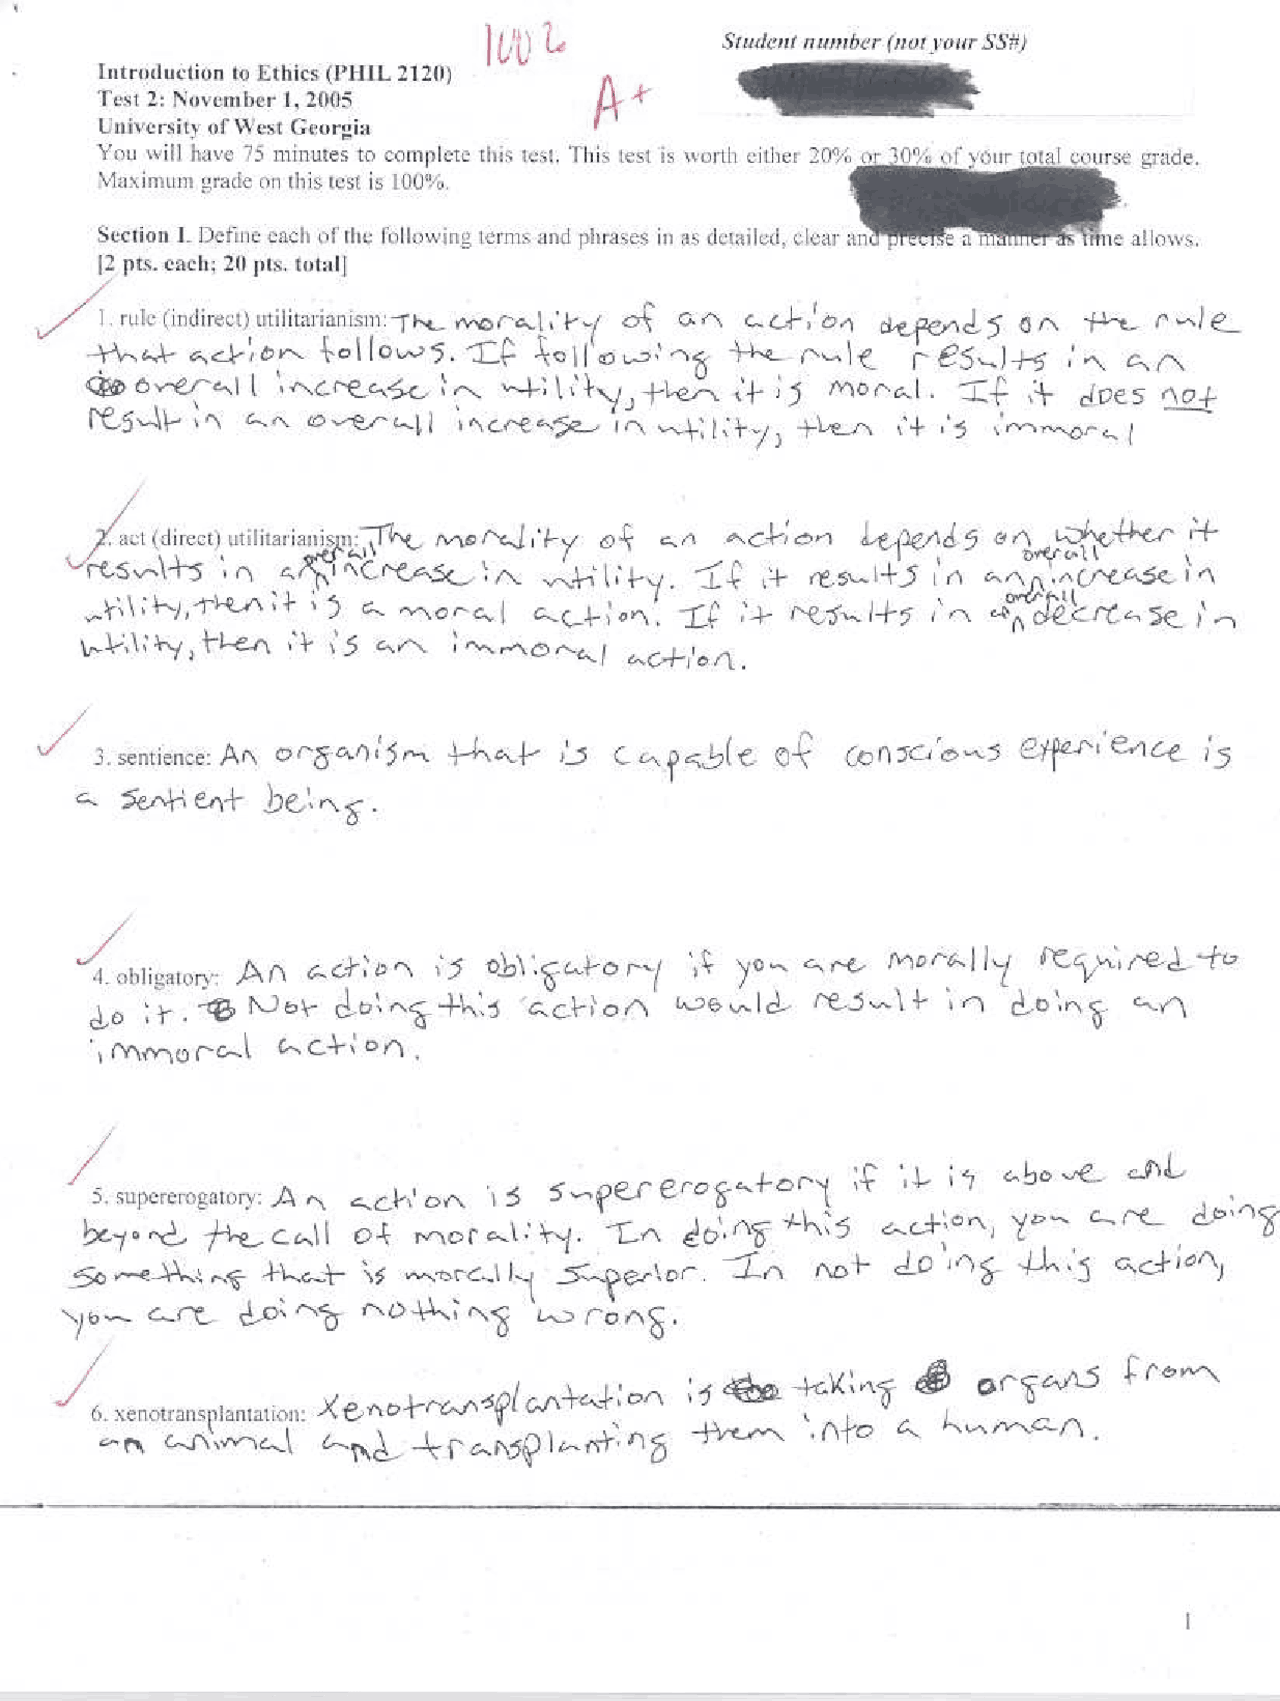 100%
Student number (not your SS#)
Introduction to Ethics (PHIL 2120)
A+
Test 2: November 1, 2005
University of West Georgia
You will have 75 minutes to complete this test. This test is worth either 20% or 30% of your total course grade.
Maximum grade on this test is 100%.
Section I. Define each of the following terms and phrases in as detailed, clear and precise a manner as time allows.
[2 pts. each; 20 pts. total]
1. rule (indirect) utilitarianism: The morality of an action depends on the rule
that action follows. If following the rule results in an
overall increase in utility, then it is moral. If it does not
result in an overall increase in utility, then it is immoral
2. act (direct) utilitarianism: The morality of an action depends on whether it
results in an overall increase in utility. If it results in an overall increase in
utility, then it is a moral action. If it results in an overall decrease in
utility, then it is an immoral action.
3. sentience: An organism that is capable of conscious experience is
a sentient being.
4. obligatory: An action is obligatory if you are morally required to
do it. Not doing this action would result in doing an
immoral action.
5. supererogatory: An action is supererogatory if it is above and
beyond the call of morality. In doing this action, you are doing
something that is morally superior. In not doing this action,
you are doing nothing wrong.
6. xenotransplantation: Xenotransplantation is taking organs from
an animal and transplanting them into a human.
1